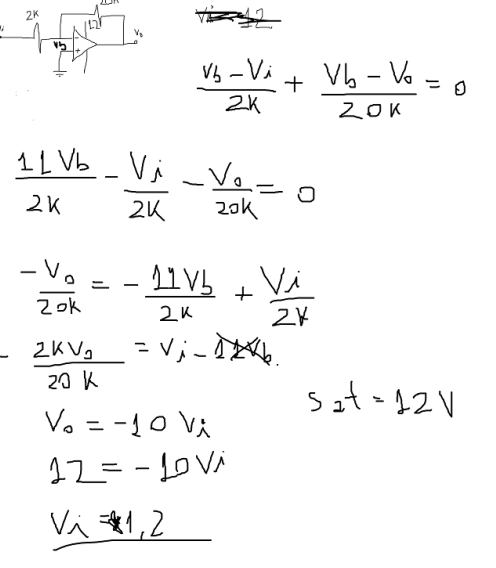 2K
12
Vb
Vo
Vb - Vi / 2K + Vb - Vo / 20K = 0
11Vb / 2K - Vi / 2K - Vo / 20K = 0
-Vo / 20K = - 11Vb / 2K + Vi / 2K
- 2KVo / 20K = Vi - 11Vb.
Sat = 12V
Vo = -10Vi
12 = -10Vi
Vi = 1,2